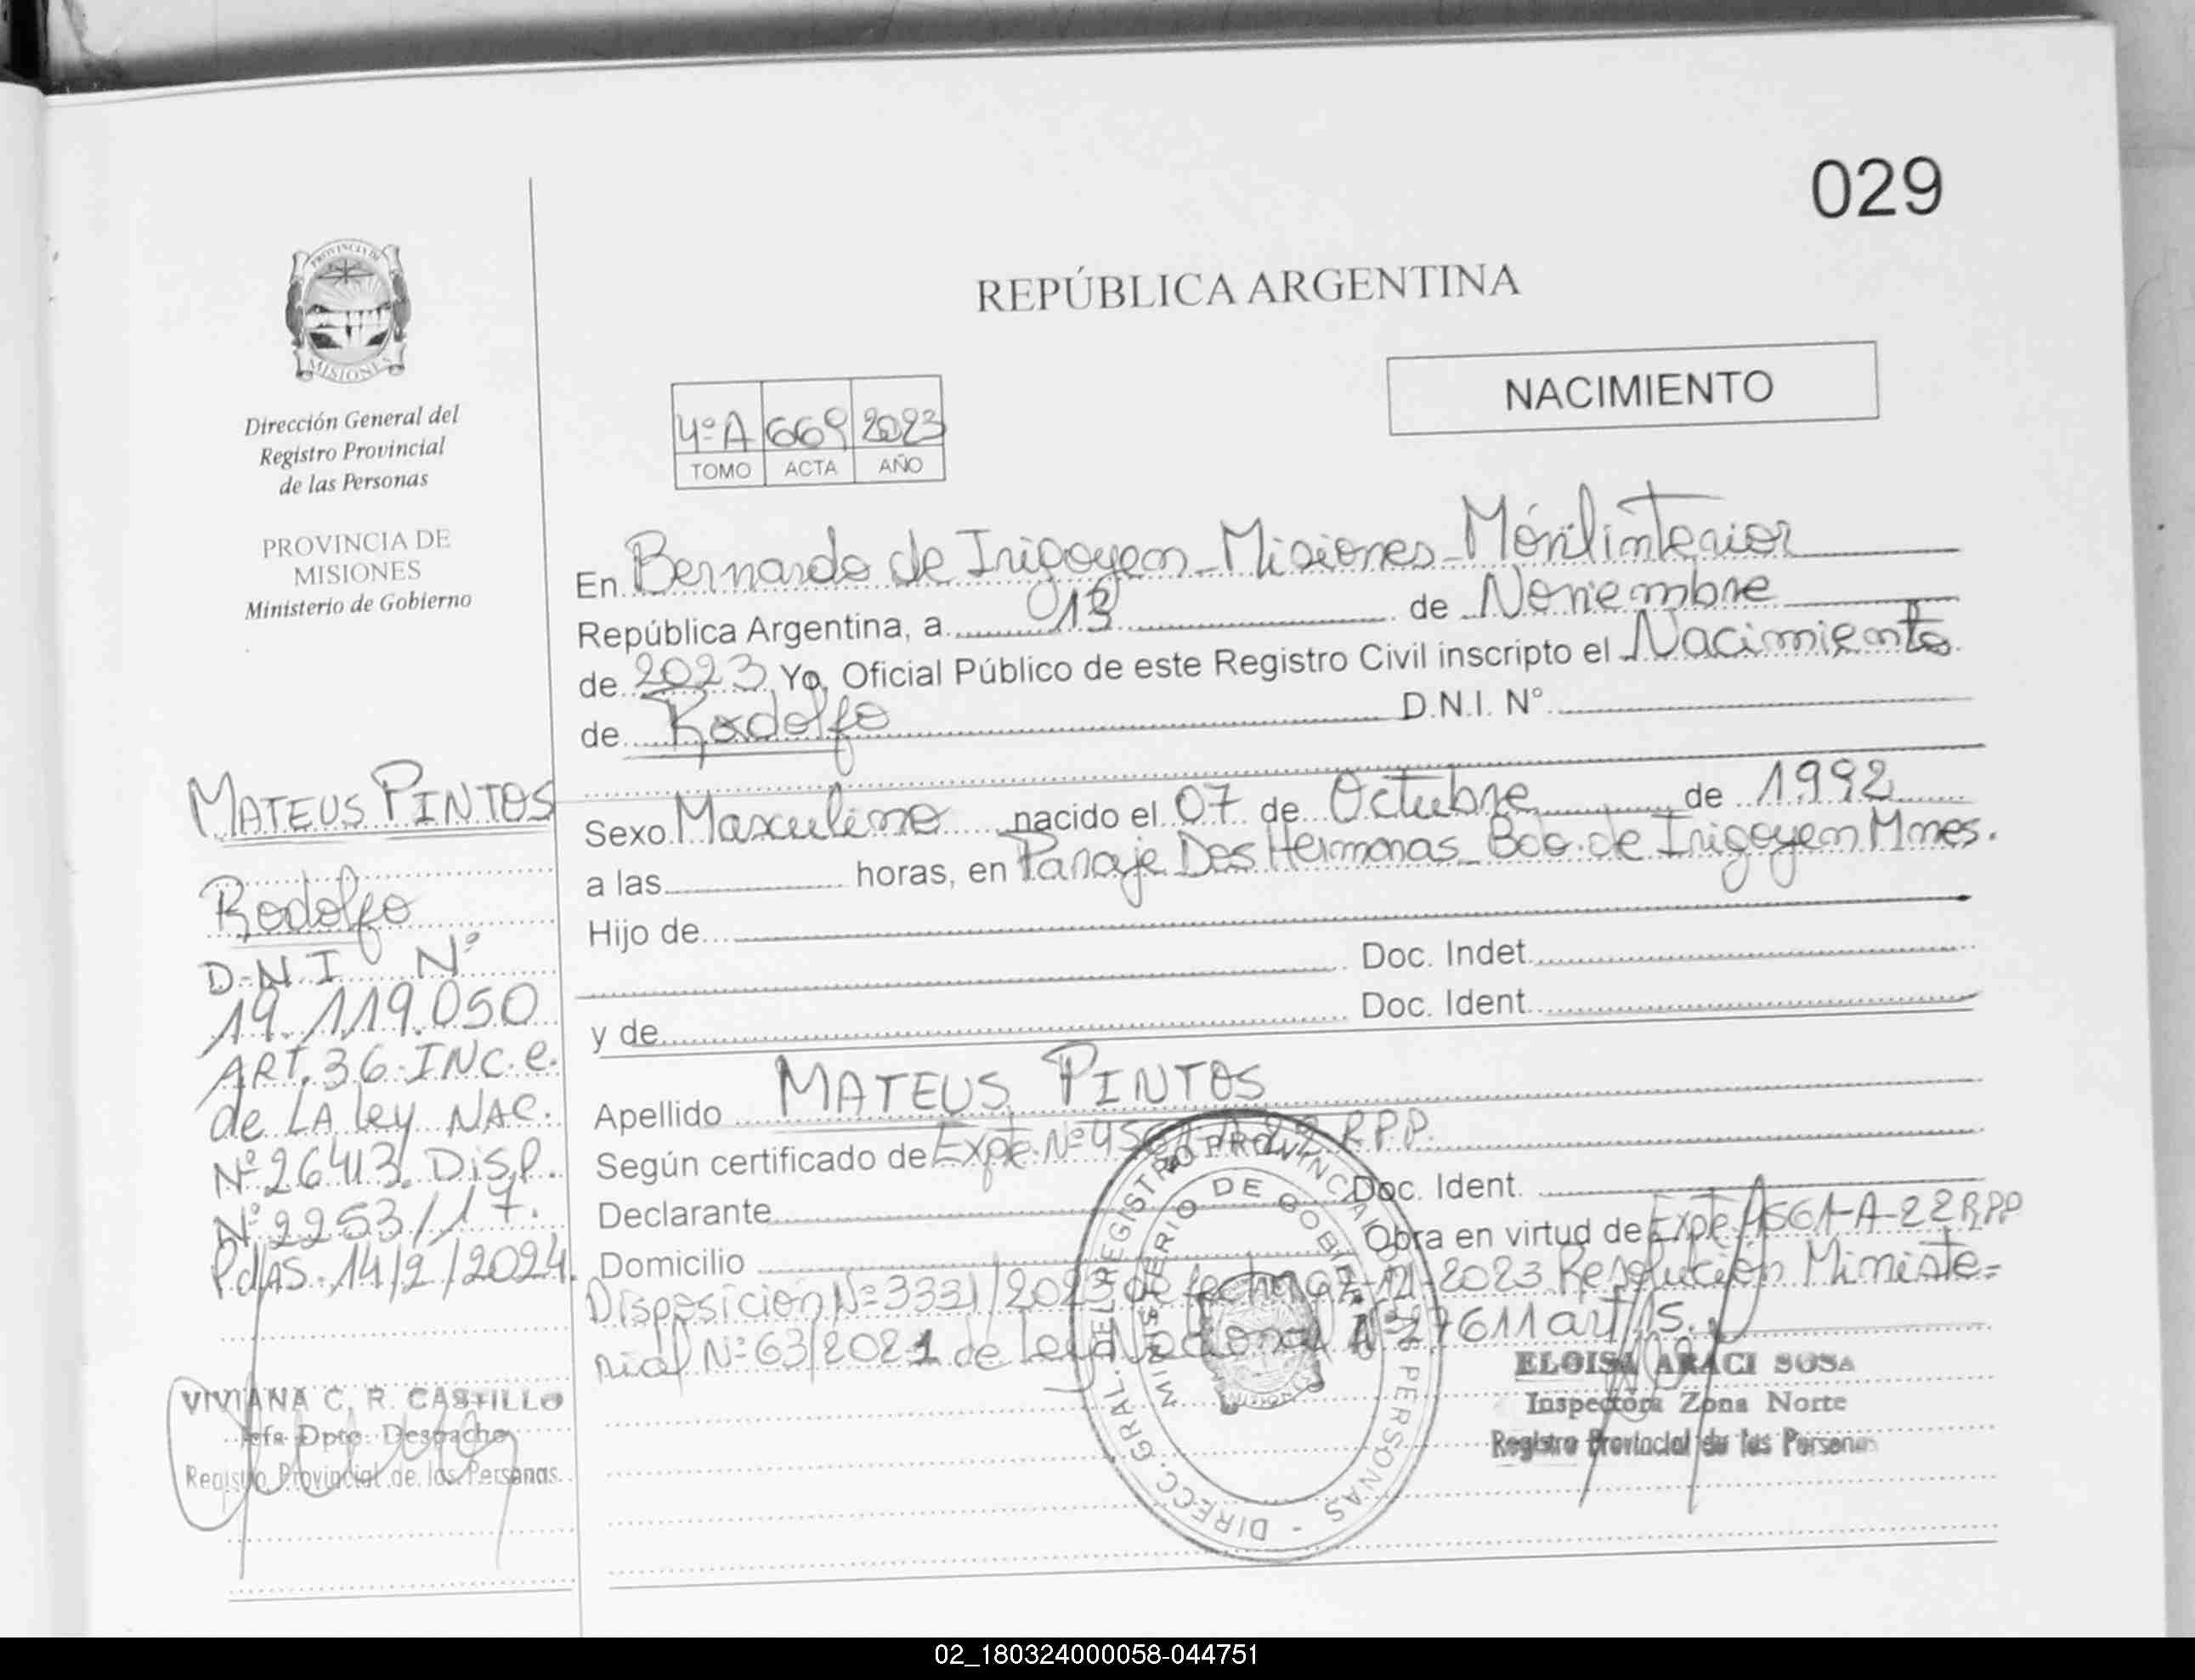 029
PROVINCIA DE
MISIONES
Dirección General del
Registro Provincial
de las Personas
PROVINCIA DE
MISIONES
Ministerio de Gobierno
MATEUS PINTOS
Rodolfo
D.N.I Nº
19.119.050
ART. 36 INC. e.
de LA ley NAC.
Nº 26413. DISP.
Nº 2253/17.
PdAS. 14/2/2024.
VIVIANA C. R. CASTILLO
Jefa Dpto. Despacho
Registro Provincial de las Personas
REPÚBLICA ARGENTINA
NACIMIENTO
4ºA 669 2023
TOMO ACTA AÑO
En Bernardo de Irigoyen - Misiones - Móvil interior
República Argentina, a 13 de Noviembre
de 2023 Yo, Oficial Público de este Registro Civil inscripto el Nacimiento
de Rodolfo D.N.I. Nº
Sexo Masculino nacido el 07 de Octubre de 1992
a las horas, en Paraje Dos Hermanas - Bdo. de Irigoyen Mnes.
Hijo de
Doc. Indet.
y de Doc. Ident.
Apellido MATEUS PINTOS
Según certificado de Expte Nº 4561-A-22 R.P.P.
Declarante Doc. Ident.
Domicilio Obra en virtud de Expte 4561-A-22 RPP
Disposición Nº 3331/2023 de fecha 02-11-2023 Resolución Ministe=
rial Nº 63/2021 de Ley Nacional Nº 27611 art/15.
DIRECC. GRAL. DEL REGISTRO PROVINCIAL DE LAS PERSONAS -
MINISTERIO DE GOBIERNO
MISIONES
ELOISA ARACI SOSA
Inspectora Zona Norte
Registro Provincial de las Personas
02_180324000058-044751